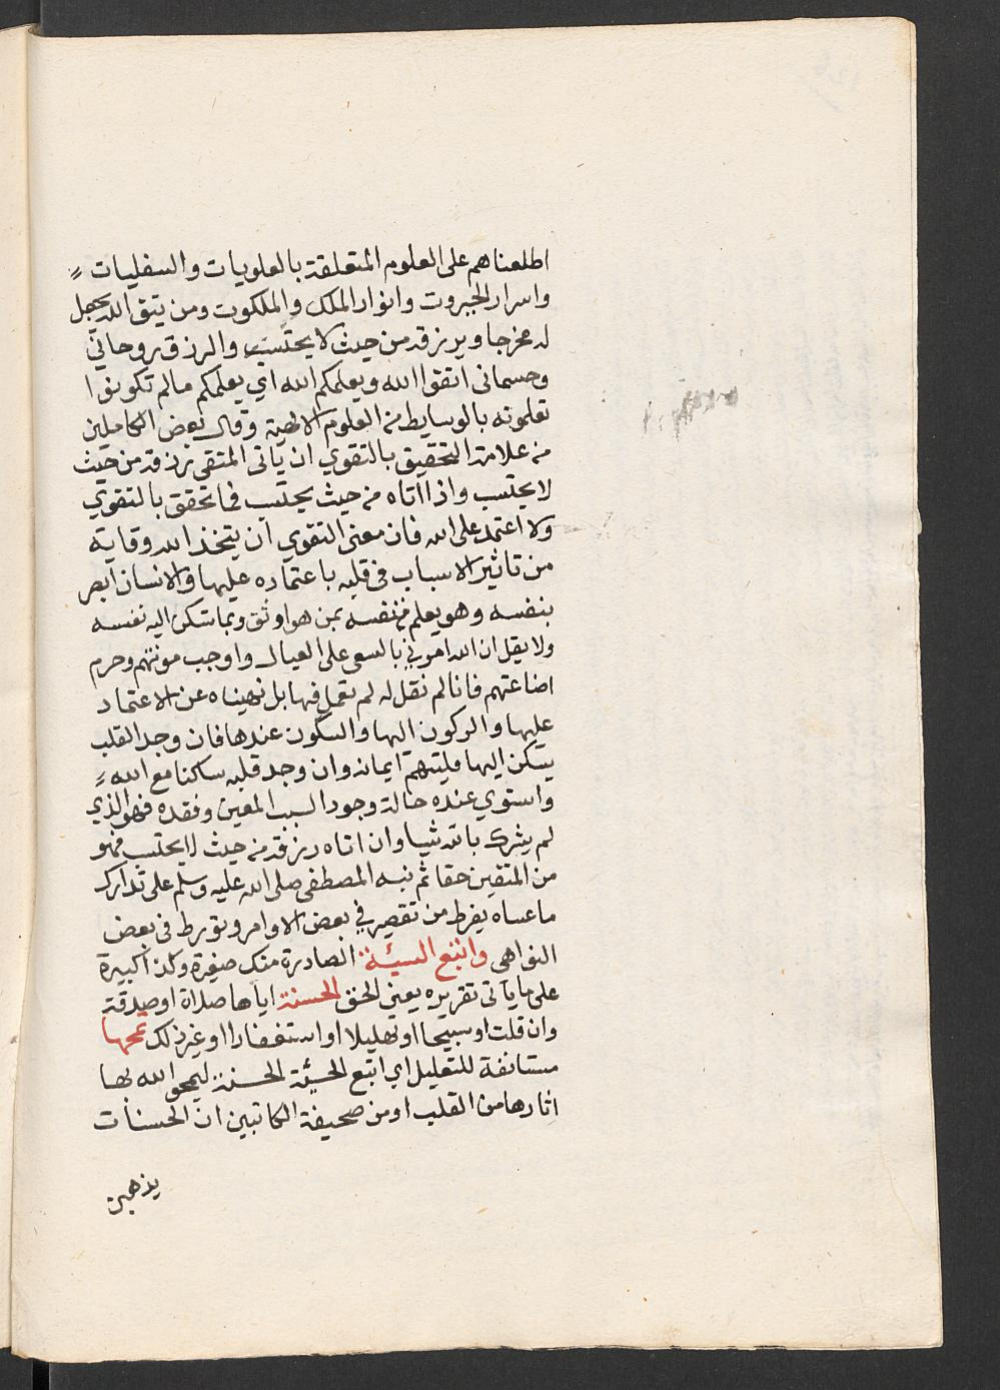 اطلعناهم على العلوم المتعلقة بالعلويات والسفليات
واسرار الجبروت وانوار الملك والملكوت ومن يتق الله يجعل
له مخرجا ويرزقه من حيث لا يحتسب والرزق روحاني
وجسماني اتقوا الله ويعلمكم الله اي يعلمكم مالم تكونوا
تعلمونه بالوسايط من العلوم الالهية وقال بعض الكاملين
من علامة التحقيق بالتقوي ان ياتى المتقى رزقه من حيث
لا يحتسب واذا اتاه من حيث يحتسب فما تحقق بالتقوي
ولا اعتمد على الله فان معنى التقوي ان يتخذ الله وقاية
من تاثير الاسباب فى قلبه باعتماده عليها والانسان ابصر
بنفسه وهو يعلم من نفسه بمن هو اوثق وبما تسكن اليه نفسه
ولا يقل ان الله امرني بالسعى على العيال واوجب مونتهم وحرم
اضاعتهم فانا لم نقل له لم تعمل فيها بل نهيناه عن الاعتماد
عليها والركون اليها والسكون عندها فان وجد القلب
يسكن اليها فليتهم ايمانه وان وجد قلبه ساكنا مع الله
واستوي عنده حالة وجود السبب المعين وفقده فهو الذي
لم يشرك بالله شيا وان اتاه رزقه من حيث لا يحتسب فهو
من المتقين حقا ثم نبه المصطفى صلى الله عليه وسلم على تدارك
ما عساه يفرط من تقصير في بعض الاوامر وتورط فى بعض
النواهى واتبع السيئة الصادرة منك صغيرة وكذا كبيرة
على ما ياتى تقريره يعني الحق الحسنة اياها صلاة او صدقة
وان قلت او تسبيحا او تهليلا او استغفارا او غير ذلك تمحها
مستانفة للتعليل اي اتبع السيئة الحسنة ليمحو الله بها
اثارها من القلب او من صحيفة الكاتبين ان الحسنات
يذهبن